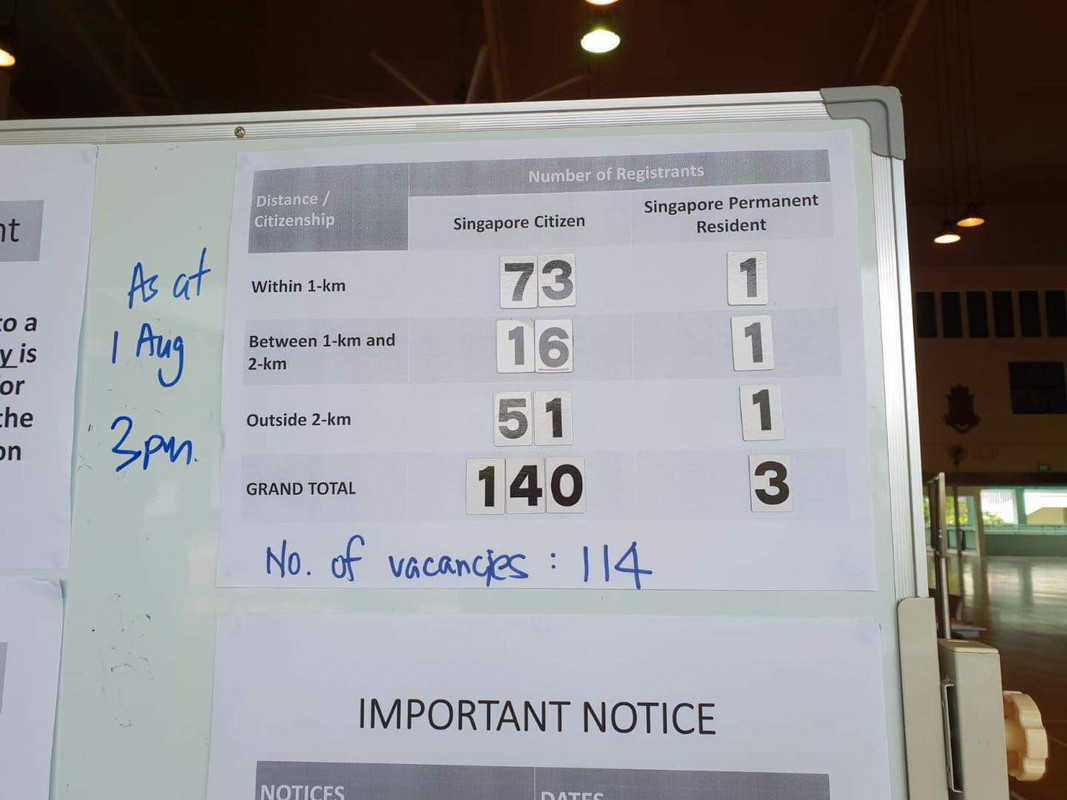 nt
to a
y is
for
the
on
As at
1 Aug
3pm.
Distance /
Citizenship
Number of Registrants
Singapore Citizen
Singapore Permanent
Resident
Within 1-km 73 1
Between 1-km and
2-km 16 1
Outside 2-km 51 1
GRAND TOTAL 140 3
No. of vacancies : 114
IMPORTANT NOTICE
NOTICES DATES